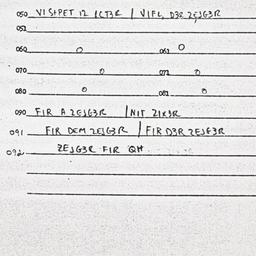 050 VI SHPET IZ ICT3R / VIFL, D3R ZEJG3R
052
060 O 061 O
070 O 072 O
080 O 082 O
090 FIR A ZEJG3R / NIT ZIX3R
091 FIR DEM ZEJG3R / FIR D3R ZEJG3R
092 ZEJG3R FIR QH